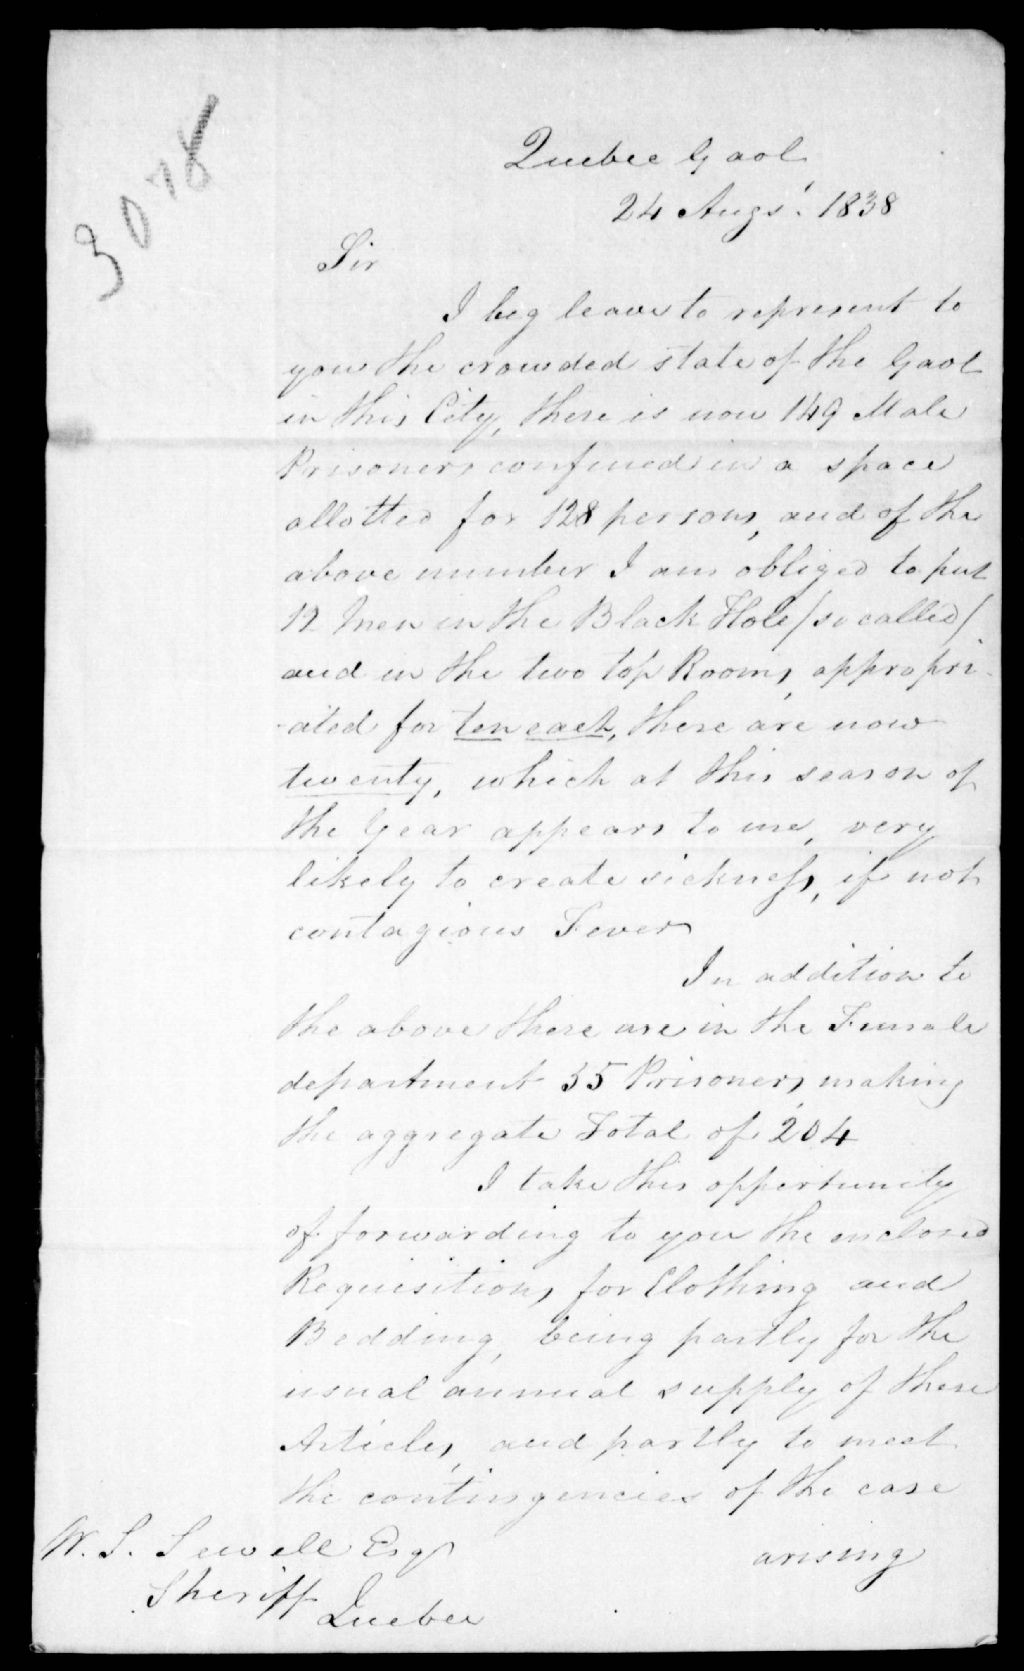 3078
Quebec Gaol
24 Augst. 1838
Sir
I beg leave to represent to
you the crowded state of the Gaol
in this City, there is now 149 Male
Prisoners confined in a space
allotted for 128 persons, and of the
above number I am obliged to put
12 Men in the Black Hole /so called/
and in the two top Rooms, appropri-
-ated for ten each, there are now
twenty, which at this season of
the Year appears to me, very
likely to create sickness, if not
contagious Fever
In addition to
the above there are in the Female
department 55 Prisoners, making
the aggregate Total of 204
I take this opportunity
of forwarding to you the enclosed
Requisitions for Clothing and
Bedding, being partly for the
usual annual supply of these
Articles, and partly to meet
the contingencies of the case
arising
W. S. Sewell Esqr
Sheriff
Quebec